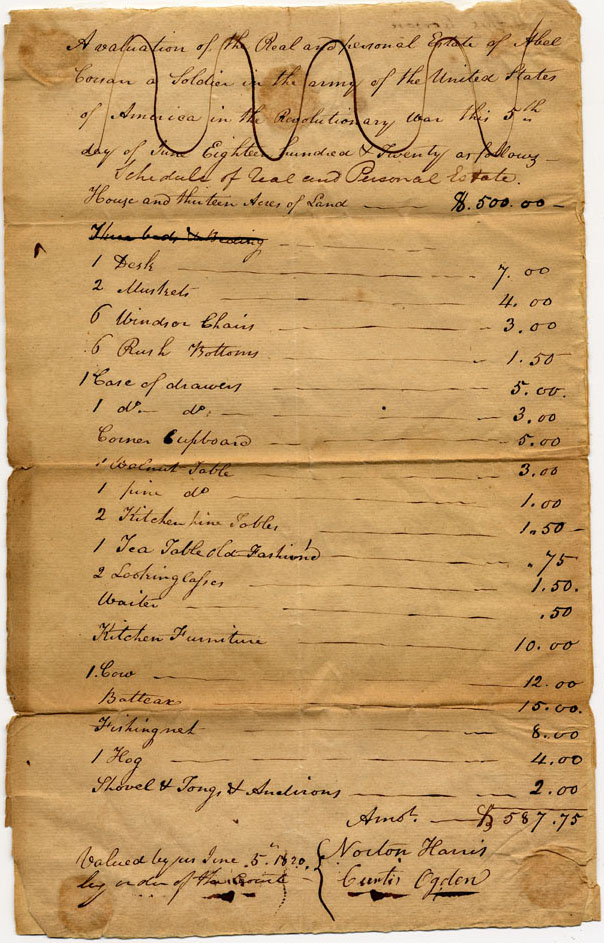 A valuation of the Real and personal Estate of Abel
Corsan a Soldier in the army of the United States
of America in the Revolutionary war this 5th
day of June Eighteen hundred & Twenty as follows —
Schedule of real and Personal Estate.
House and thirteen Acres of Land — $.500.00 —
Three beds & Beding
1 Desk — 7.00
2 Muskets — 4.00
6 Windsor Chairs — 3.00
6 Rush Bottoms — 1.50
1 Case of drawers — 5.00.
1 do. — do. — 3.00
Corner Cupboard — 5.00
1 Walnut Table — 3.00
1 pine do — 1.00
2 Kitchen pine Tables — 1.50 —
1 Tea Table old Fashion'd — .75
2 Lookinglasses — 1.50.
Waiter — .50
Kitchen Furniture — 10.00
1. Cow — 12.00
Batteax — 15.00.
Fishingnet — 8.00
1 Hog — 4.00
Shovel & Tongs & Andirons — 2.00
Amot. — $ 587.75
Valued by us June 5th 1820.
by order of the Courte
Norton Harris
Curtis Ogden